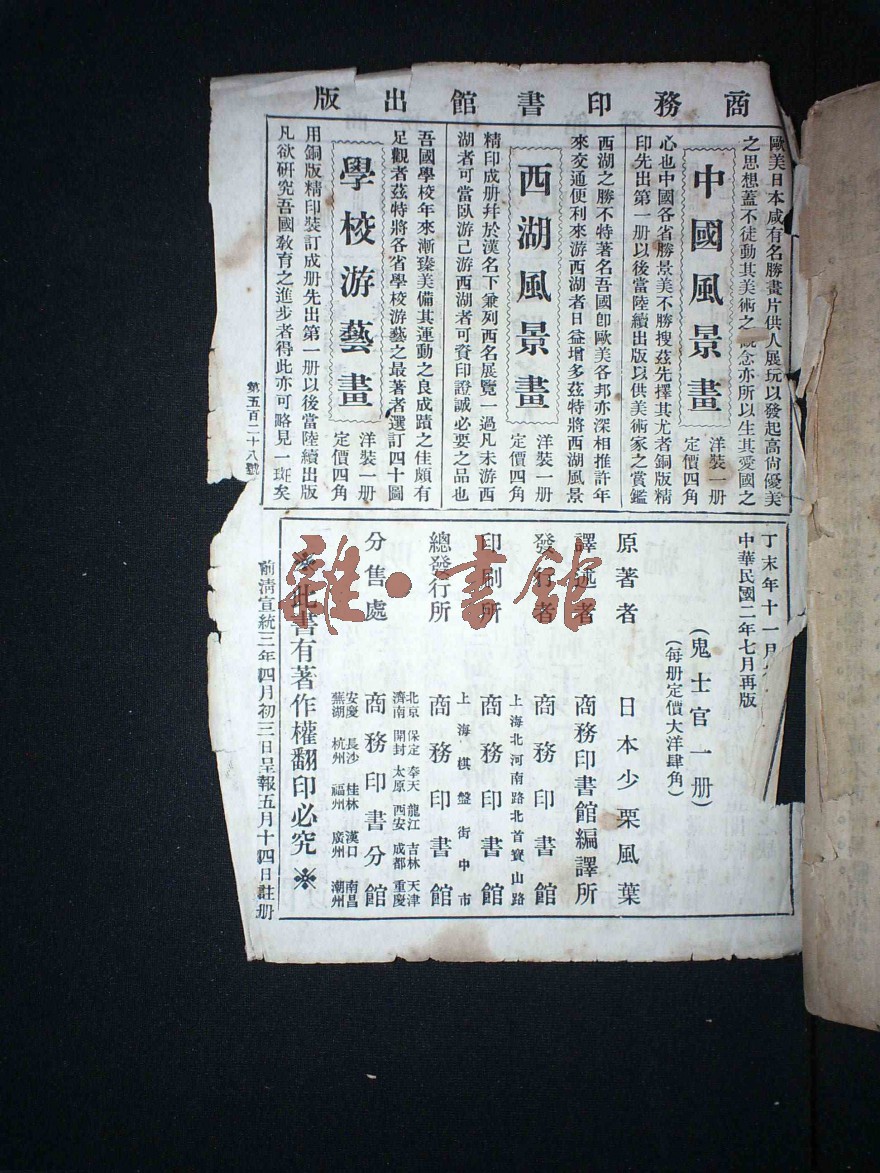 商務印書館出版
歐美日本咸有名勝畫片供人展玩以發起高尙優美
之思想蓋不徒動其美術之觀念亦所以生其愛國之
中國風景畫
洋裝一册
定價四角
心也中國各省勝景美不勝搜茲先擇其尤者銅版精
印先出第一册以後當陸續出版以供美術家之賞鑑
西湖之勝不特著名吾國卽歐美各邦亦深相推許年
來交通便利來游西湖者日益增多茲特將西湖風景
西湖風景畫
洋裝一册
定價四角
精印成册幷於漢名下兼列西名展覽一過凡未游西
湖者可當臥游已游西湖者可資印證誠必要之品也
吾國學校年來漸臻美備其運動之良成蹟之佳頗有
足觀者茲特將各省學校游藝之最著者選訂四十圖
學校游藝畫
洋裝一册
定價四角
用銅版精印裝訂成册先出第一册以後當陸續出版
凡欲硏究吾國敎育之進步者得此亦可略見一斑矣
第五百二十八號
丁未年十一月
中華民國二年七月再版
(鬼士官一册)
(每册定價大洋肆角)
原著者 日本少栗風葉
譯述者 商務印書館編譯所
發行者 商務印書館
上海北河南路北首寶山路
印刷所 商務印書館
上海棋盤街中市
總發行所 商務印書館
北京 保定 奉天 龍江 吉林 天津
濟南 開封 太原 西安 成都 重慶
分售處 商務印書分館
安慶 長沙 桂林 漢口 南昌
蕪湖 杭州 福州 廣州 潮州
※此書有著作權翻印必究※
前淸宣統三年四月初三日呈報五月十四日註册
雜·書館